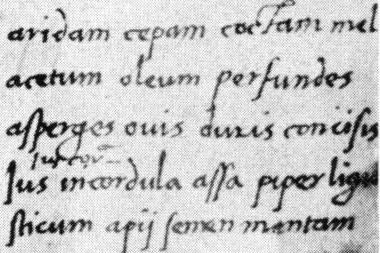 aridam cepam coctam mel
acetum oleum perfundes
asperges ouis duris concisis
Ius in cordula assa piper ligu
sticum apij semen mentam